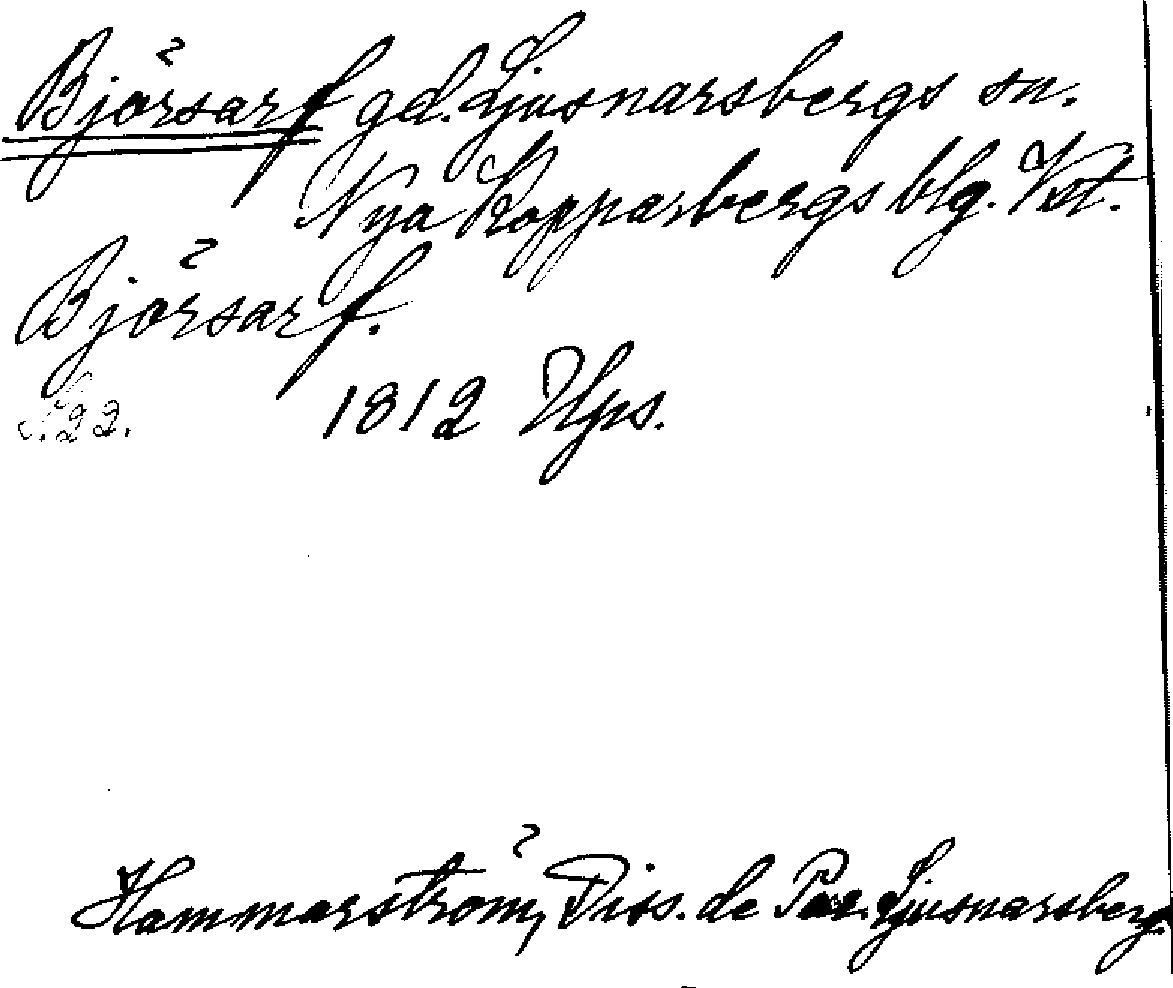 Björsarf gd. Ljusnarsbergs sn.
Nya Kopparbergs blg. Vst.
Björsarf.
S. 22. 1812 Ups.
Hammarström, Diss. de Par. Ljusnarsberg.